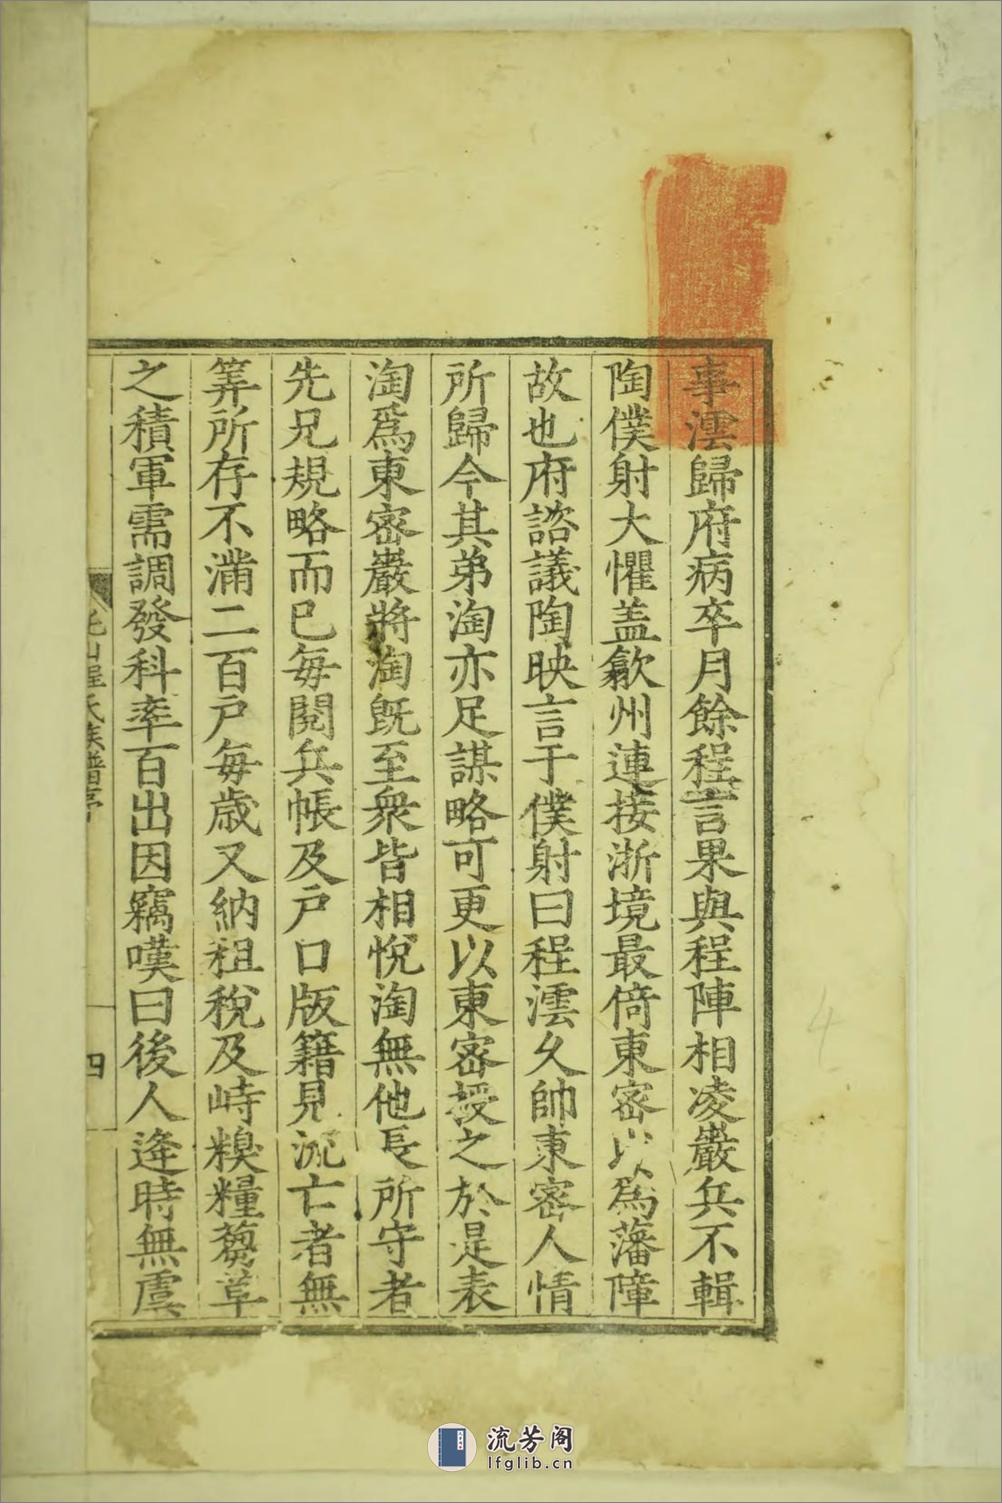 事澐歸府病卒月餘程言果與程陣相凌巖兵不輯
陶僕射大懼盖歙州連接浙境最倚東密以為藩障
故也府諮議陶映言于僕射曰程澐久帥東密人情
所歸今其弟淘亦足謀略可更以東密授之於是表
淘為東密巖將淘既至衆皆相悅淘無他長所守者
先兄規略而已每閱兵帳及戶口版籍見流亡者無
筭所存不滿二百戶每歲又納租稅及峙糗糧蒭草
之積軍需調發科率百出因竊嘆曰後人逄時無虞
山程氏族譜序
四
4
流芳阁
lfglib.cn